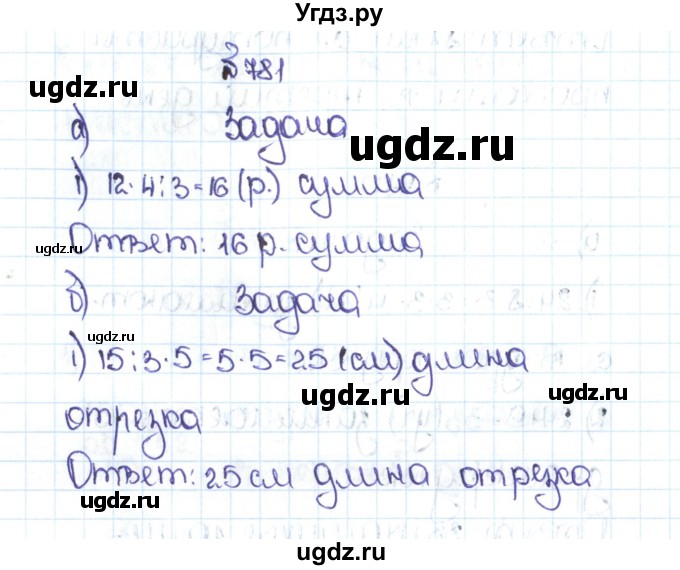 Угдз.ру
№781
ugdz.ru
а) Задача
ugdz.ru
1) 12·4:3=16 (р.) сумма
Ответ: 16 р. сумма
ugdz.ru
б) Задача
ugdz.ru
1) 15:3·5=5·5=25 (см) длина
ugdz.ru
ugdz.ru
отрезка
Ответ: 25 см длина отрезка
ugdz.ru
ugdz.ru